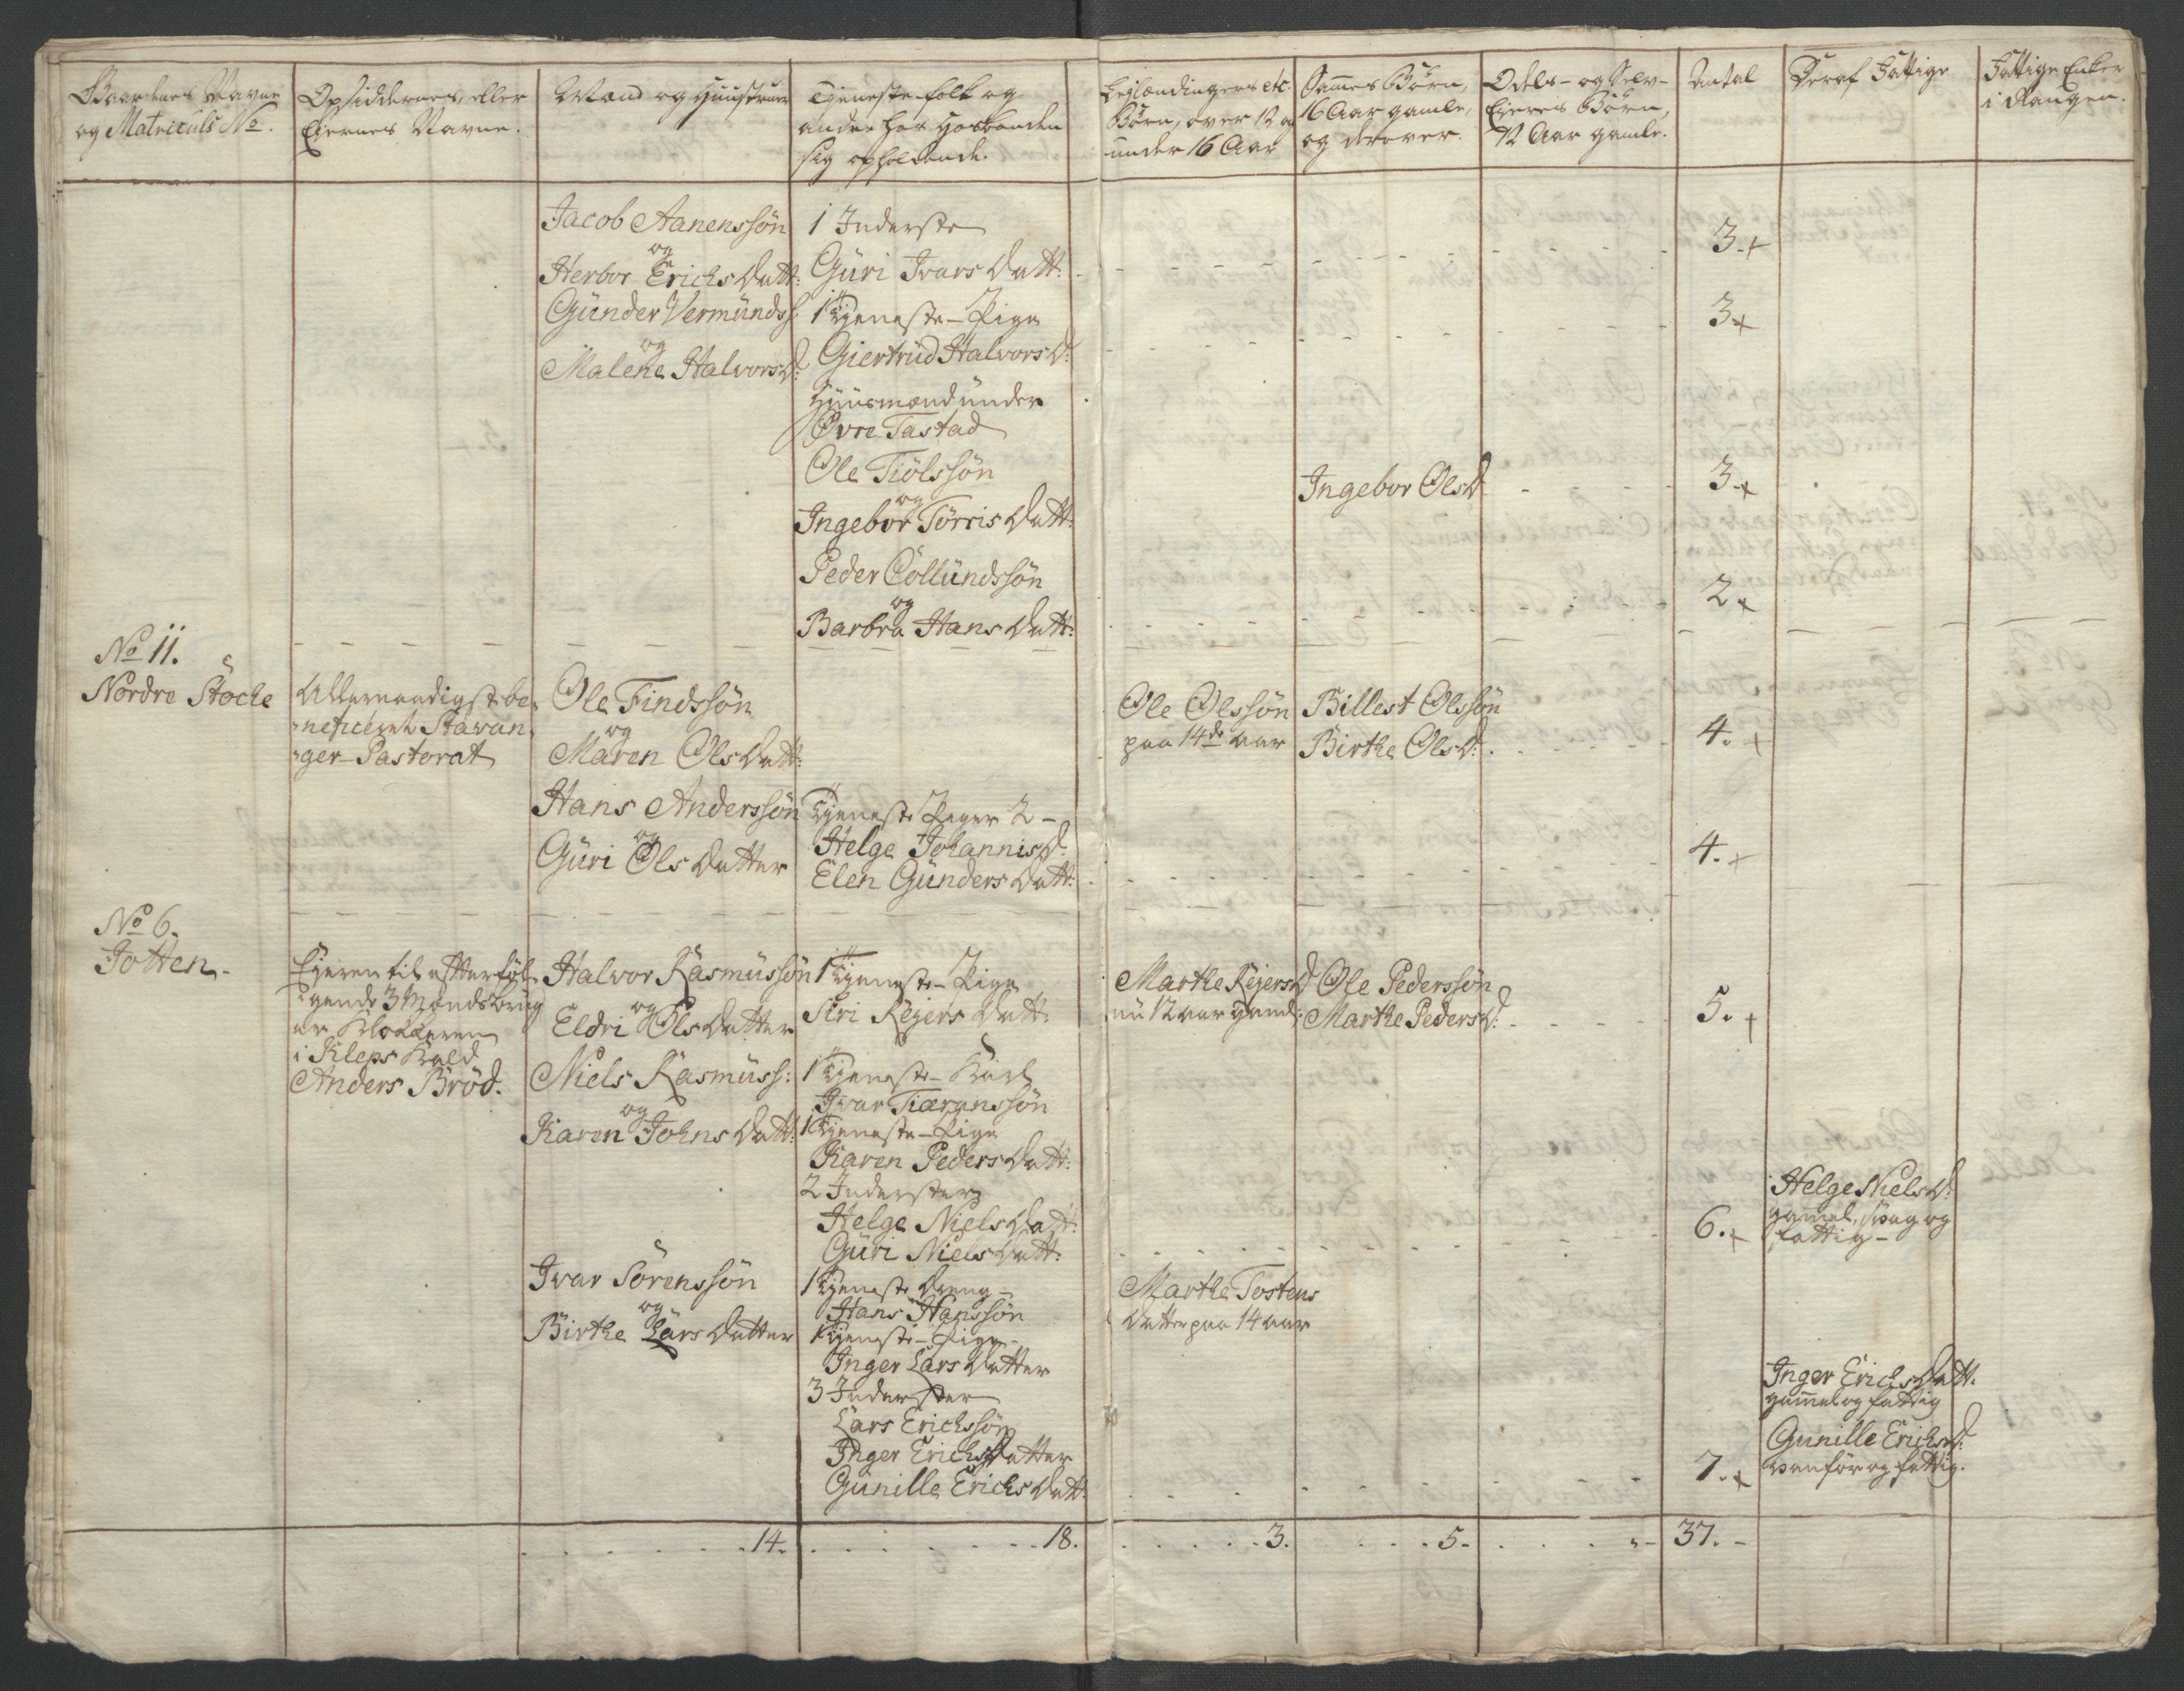 Gaardenes Navne
og Matriculs No.
Opsiddernes, eller
Eiernes Navne.
Mænd og Huustruer
Tjeneste-folk og
andre hos Hosbonden
sig opholdende.
Leylændingers etc.
Børn, over 12 og
under 16 Aar
Sammes Børn,
16 Aar gamle,
og derover.
Odels- og Selv-
Eieres Børn,
12 Aar gamle.
Antal
Deraf Fattige
Fattige Enker
i Rangen.
Jacob Aanenssøn
og
Herbor Erichs Datt:
1 Inderste
Güri Ivars Datt:
3.+
Günder Vermündss:
og
Malene Halvors D:
1 Tjeneste-Pige
Giertrüd Halvors D:
3+
Huusmænd under
Øvre Tastad
Ole Tiölssøn
og
Ingebor Törris Datt:
Ingebor Ols D
3+
Peder Collündssøn
og
Barbra Hans Datt:
2+
No 11.
Nordre Stöche
Allernaadigst be-
neficeret Stavan-
ger-Pastorat
Ole Findssøn
og
Maren Ols Datt:
Ole Olssøn
paa 14de aar
Billest Olssøn
Birthe Ols D:
4.+
Hans Anderssøn
og
Güri Ols Datter
Tjeneste Piger 2-
Helge Johannis D:
Elen Günders Datt:
4.+
No 6.
Jotten-
Ejeren til efterføl-
gende 3 Mands brug
er Klokkeren
i Kleps Kald
Anders Bröd.
Halvor Rasmüssøn
og
Eldri Ols Datter
1 Tjeneste-Pige
Siri Rejers Datt:
Marthe Rejers D
nu 12 aar gaml:
Ole Pederssøn
Marthe Peders D:
5.+
Niels Rasmüss:
og
Karen Johns Datt:
1 Tjeneste-Karl
Ivar Tiæranssøn
1 Tjeneste-Pige
Karen Peders Datt:
2 Inderster
Helge Niels Datt:
Güri Niels Datt:
6.+
Helge Niels D:
gamel, svag og
fattig-
Ivar Sörenssøn
og
Birthe Lars Datter
1 Tjeneste Dreng-
Hans Hanssøn
1 Tjeneste-Pige-
Inger Lars Datter
3 Inderster
Lars Erichssøn
Inger Erichs Datter
Günille Erichs Datt:
Marthe Tostens
Datter paa 14 aar
7.+
Inger Erichs Datt:
gammel og fattig
Gunille Erichs D:
vanfør og fattig.
14.
18.
3.
5-
"-
37.-